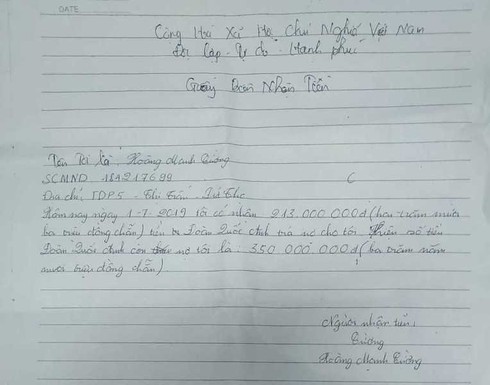 DATE
Cộng Hoà Xã Hội Chủ Nghĩa Việt Nam
Độc lập - Tự do - Hạnh phúc
Giấy Nhận Tiền
Tên Tôi là : Hoàng Mạnh Cường
SCMND. 184217699
Địa chỉ: TDP5 - Thị Trấn
Hôm nay ngày 1-7-2019 tôi có nhận 213.000.000đ (hai trăm mười
ba triệu đồng chẵn) tiền Đoàn Quốc trả nợ cho tôi số tiền
Đoàn Quốc còn nợ tôi là: 350.000.000đ (ba trăm năm
mươi triệu đồng chẵn)
Người nhận tiền,
Cường
Hoàng Mạnh Cường